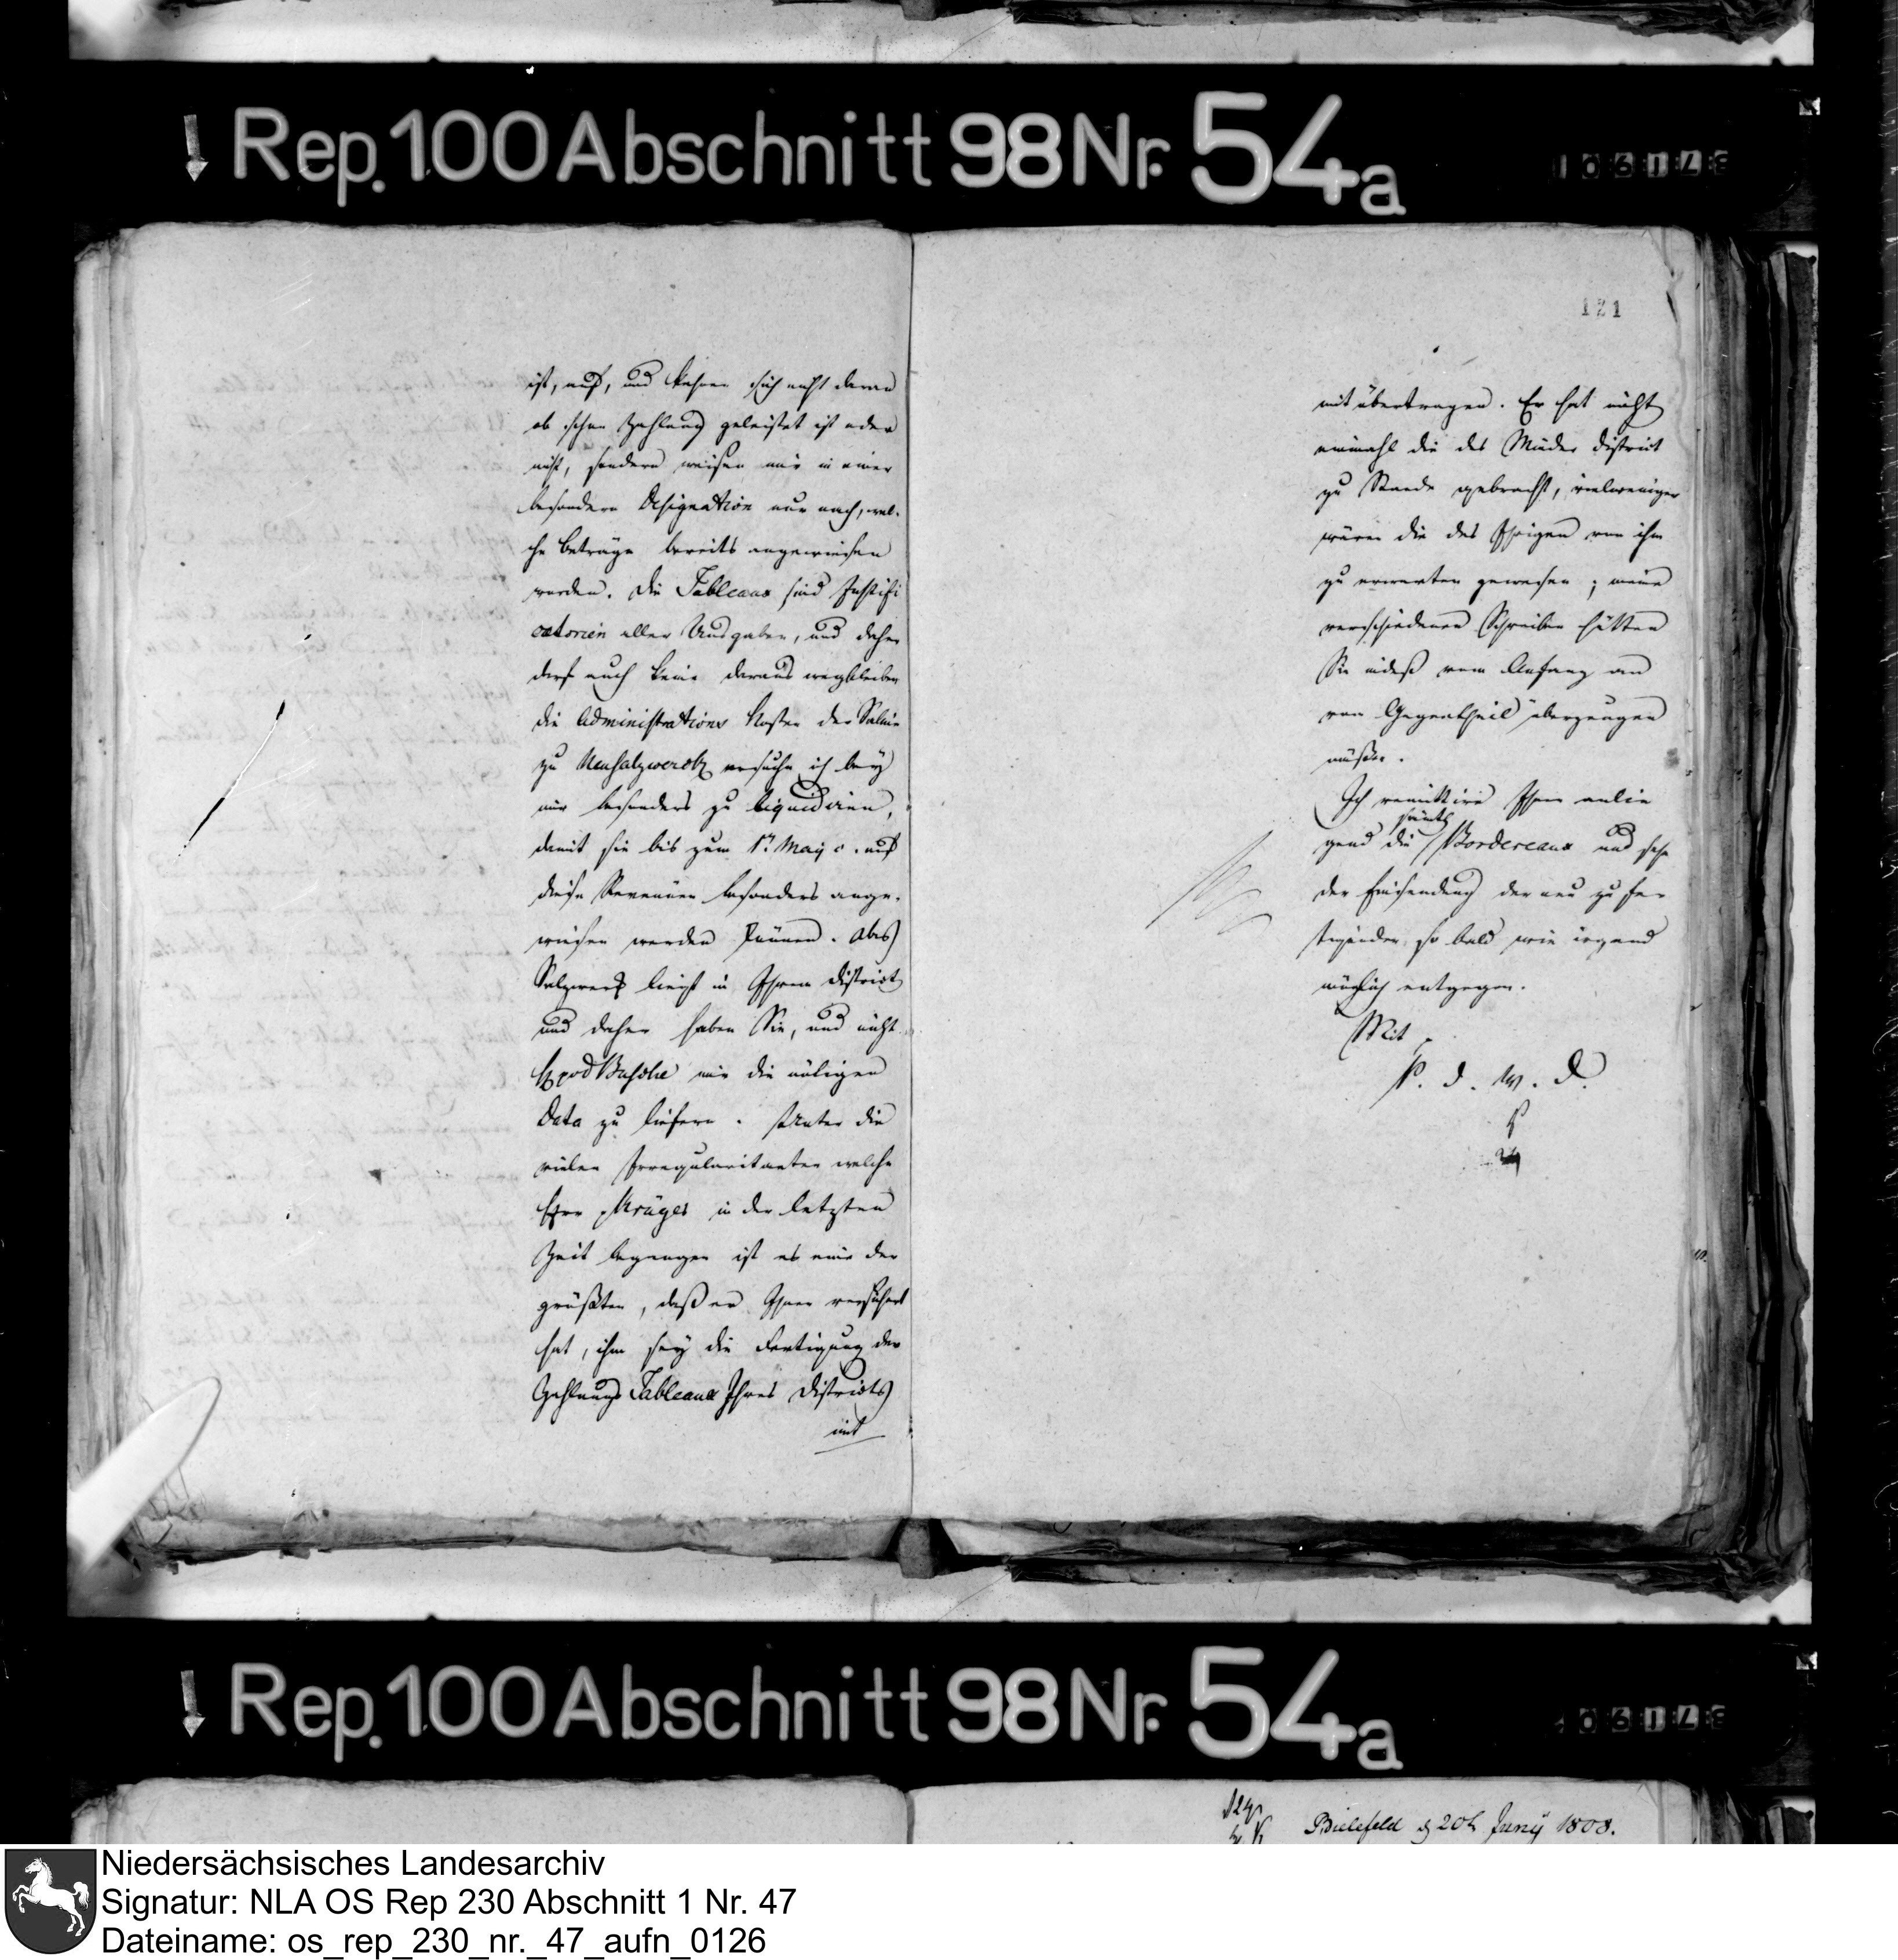 Rep. 100 Abschnitt 98 Nr. 54a
ist, auf, und kehren sich nicht daran
ob schon Zahlung geleistet ist oder
nicht, sondern weisen mir in einer
besondern Designation nur nach, wel-
che Beträge bereits angewiesen
worden. Die Tableaux sind Justifi
catorien aller Ausgaben, und daher
darf auch keine daraus wegbleiben
die Administrations Kosten der Saline
zu Neusalzwerck ersuche ich bey
mir besonders zu liquidiren,
damit sie bis zum 1n May c. auf
diese Revenüen besonders ange-
wiesen werden können. Das
Salzwerk liegt in Ihrem District
und daher haben Sie, und nicht
Busche mir die nötigen
Data zu liefern. Unter die
vielen Irregularitaeten welche
Herr Krüger in der letzten
Zeit begangen ist es eine der
größten, daß er Ihnen versichert
hat, ihm sey die Fertigung der
Zahlungs Tableaux Ihres Districts
mit
121
mit übertragen. Er hat nicht
einmahl die des Minder District
zu Stande gebracht, vielweniger
wären die des Ihrigen von ihm
zu erwarten gewesen; meine
verschiedenen Schreiben hätten
Sie indeß vom Anfang an
von Gegentheil überzeugen
müssen.
Ich remittire Ihnen anlie
sämtl
gend die Bordereaux und sehe
der Einsendung der neu zu fer-
tigenden so bald wie irgend
möglich entgegen.
Mit
P. d. w. D.
Rep. 100 Abschnitt 98 Nr. 54a
Bielefeld d 20t Juny 1808.
Niedersächsisches Landesarchiv
Signatur: NLA OS Rep 230 Abschnitt 1 Nr. 47
Dateiname: os_rep_230_nr._47_aufn_0126